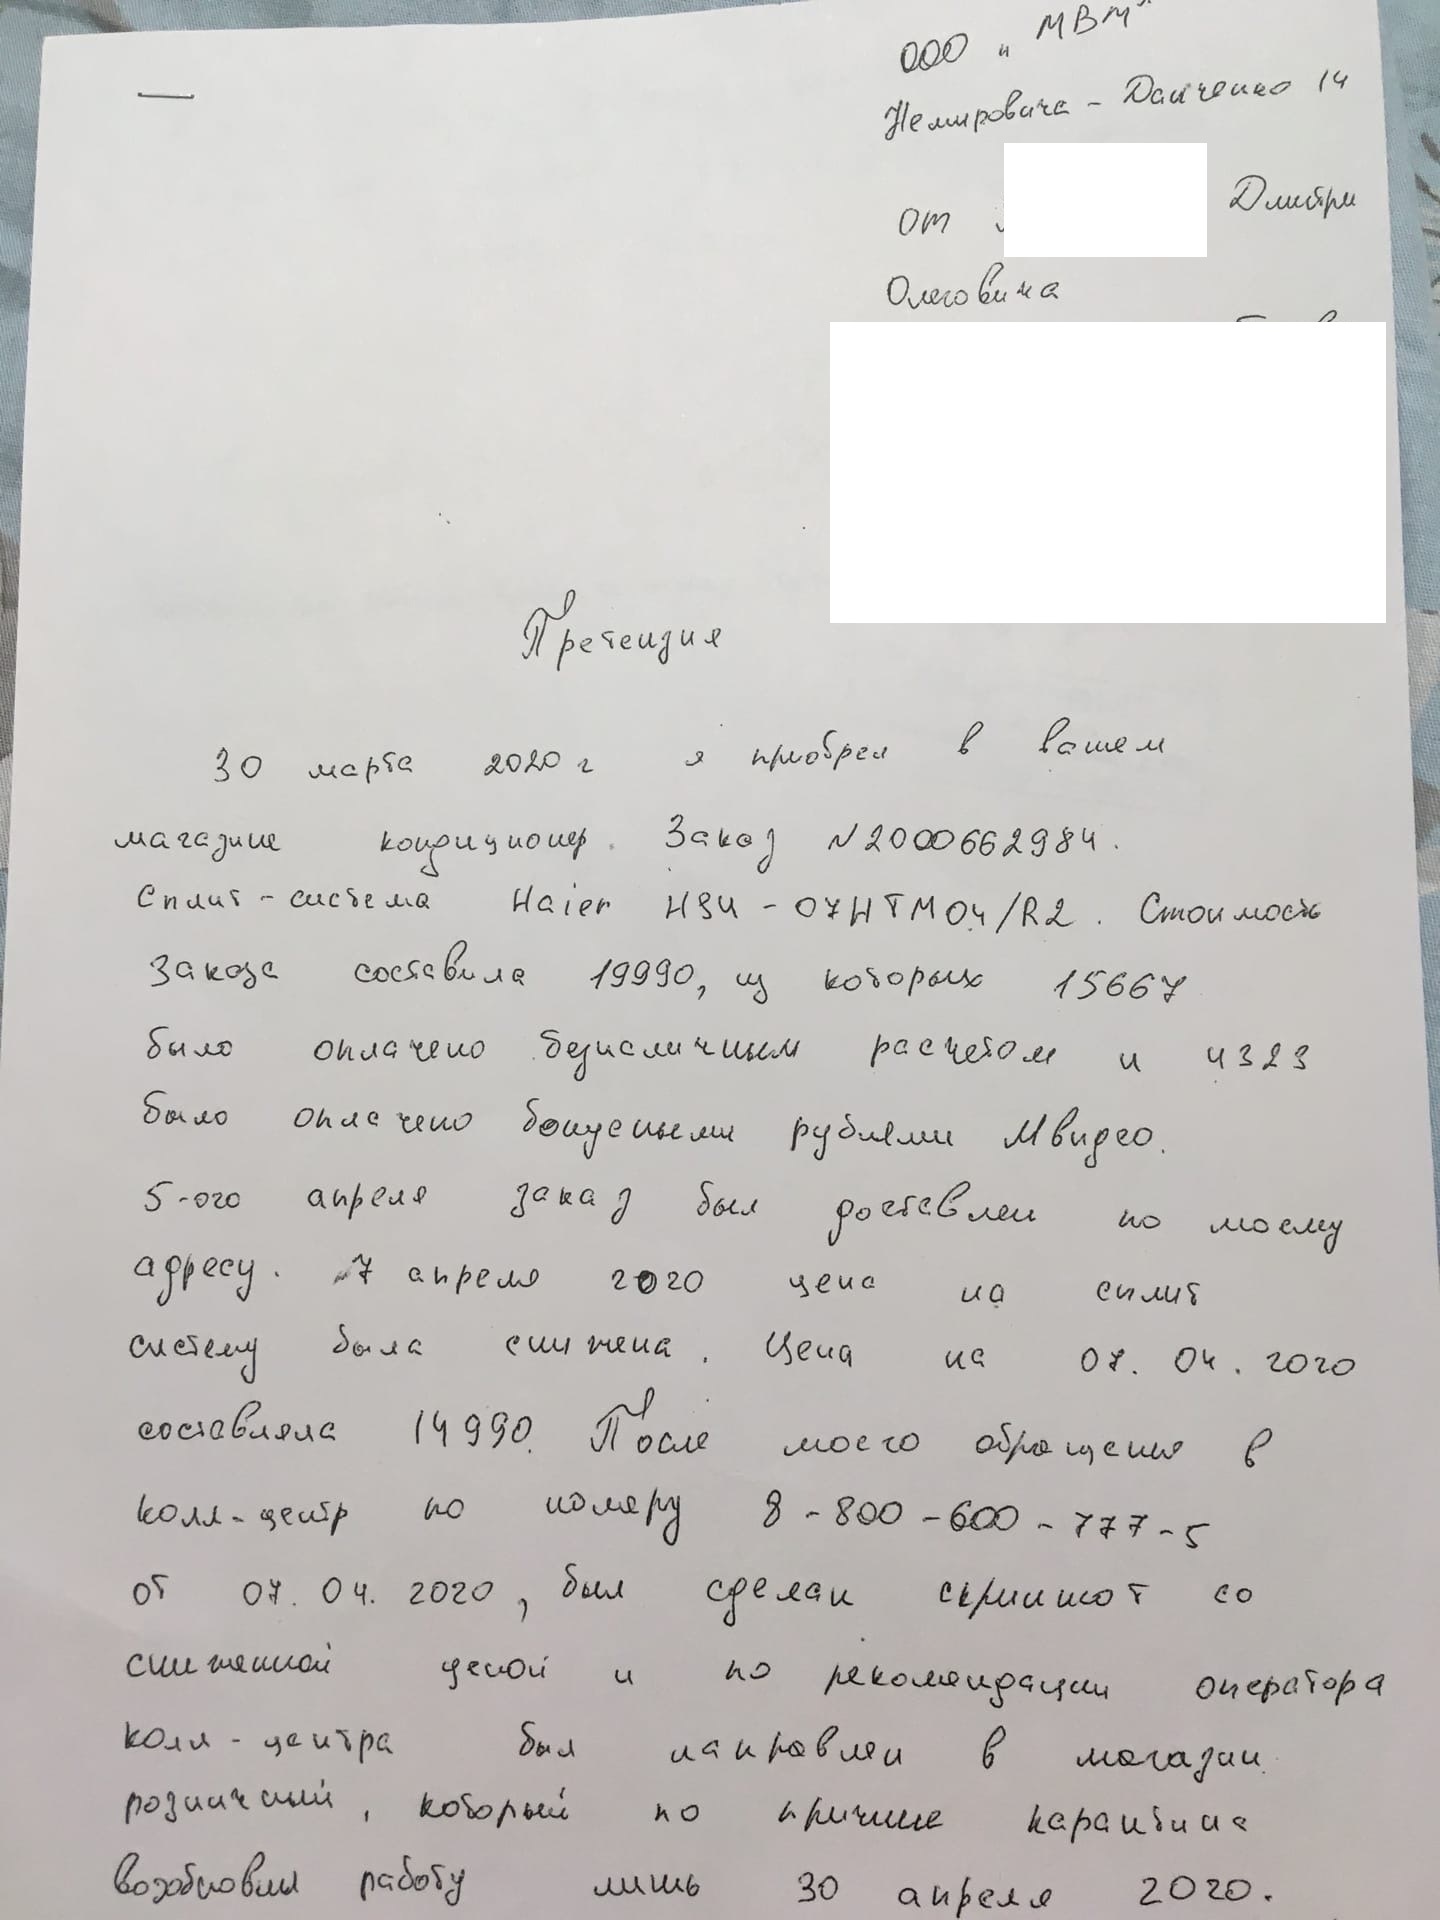 ООО „МВМ"
Немировича-Данченко 14
от Дмитри
Олеговича
Претензия
30 марта 2020 г я приобрел в вашем
магазине кондиционер. Заказ N2000662984.
Сплит-система Haier HSU-07HTM04/R2. Стоимость
Заказа составила 19990, из которых 15667
было оплачено безналичным расчетом и 4323
было оплачено бонусными рублями Мвидео.
5-ого апреля заказ был доставлен по моему
адресу. 7 апреля 2020 цена на сплит
систему была снижена. Цена на 07.04.2020
составляла 14990. После моего обращения в
колл-центр по номеру 8-800-600-777-5
от 07.04.2020, был сделан скриншот со
сниженной ценой и по рекомендации оператора
колл-центра был направлен в магазин
розничный, который по причине карантина
возобновил работу лишь 30 апреля 2020.